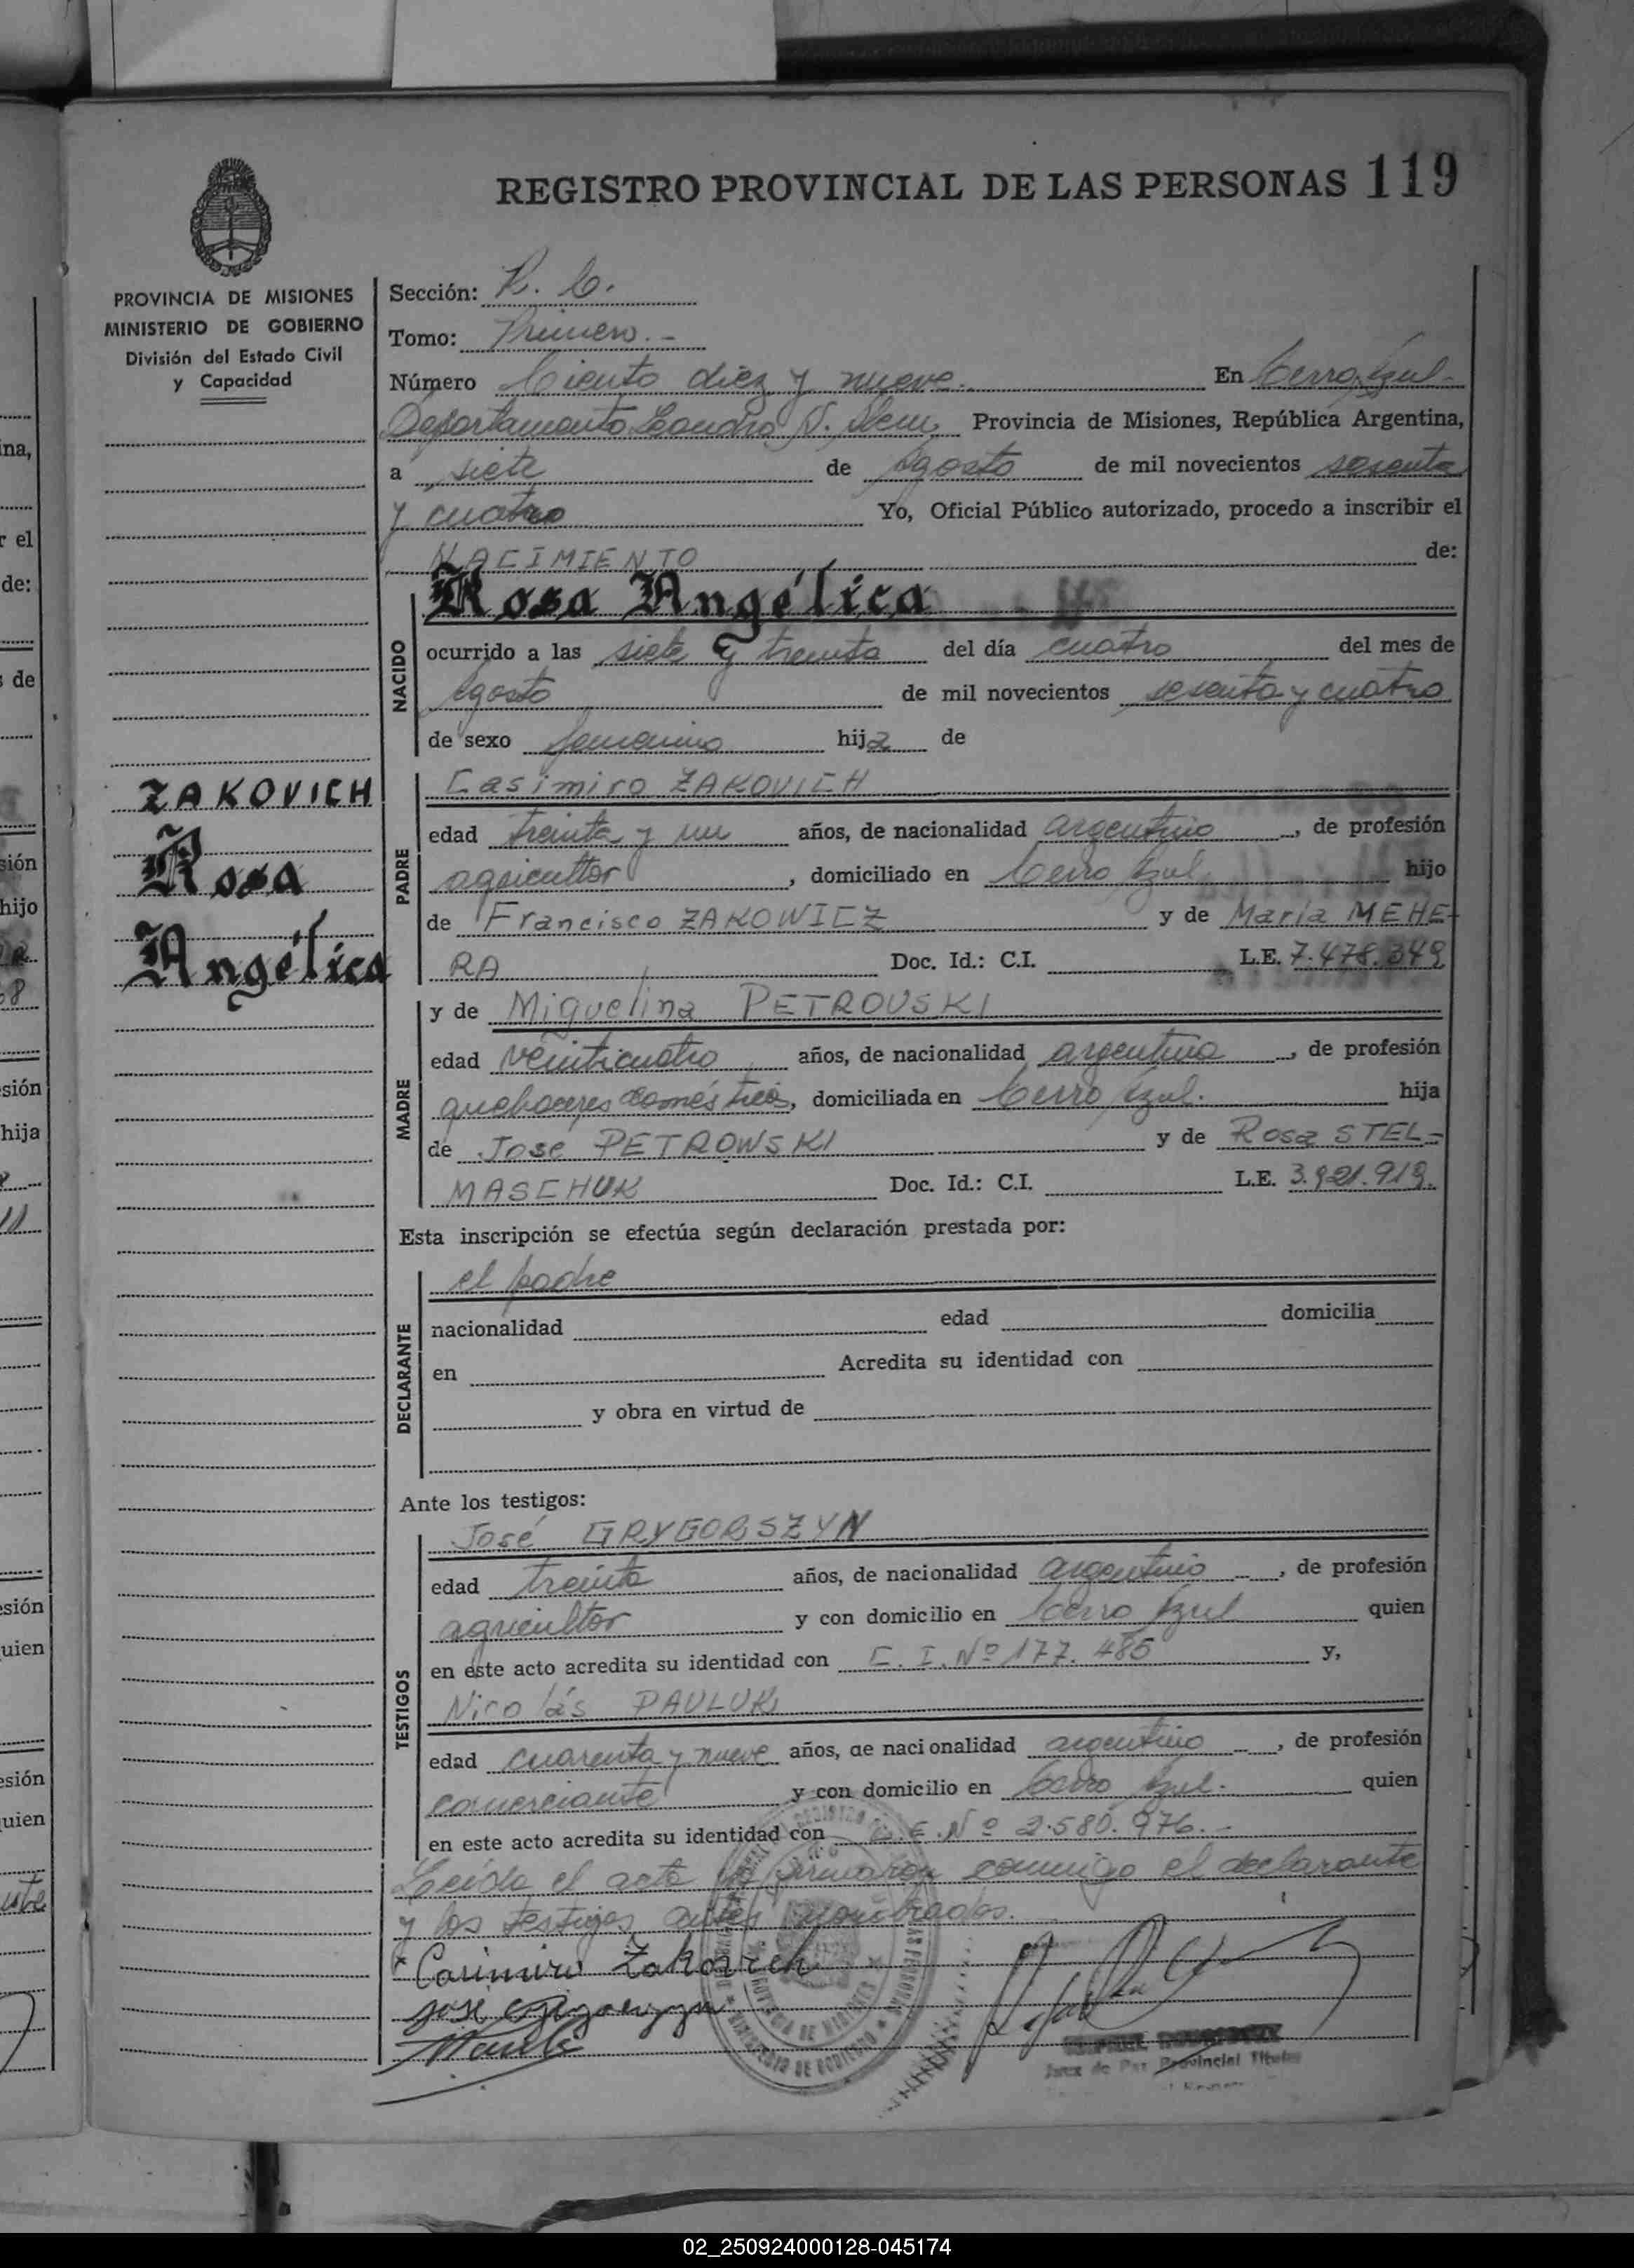 REGISTRO PROVINCIAL DE LAS PERSONAS 119
PROVINCIA DE MISIONES
MINISTERIO DE GOBIERNO
División del Estado Civil
y Capacidad
ZAKOVICH
Rosa
Angélica
Sección: R. C.
Tomo: Primero.-
Número Ciento diez y nueve. En Cerro Azul-
Departamento Leandro N. Alem, Provincia de Misiones, República Argentina,
a siete de Agosto de mil novecientos sesenta
y cuatro Yo, Oficial Público autorizado, procedo a inscribir el
NACIMIENTO de:
Rosa Angélica
NACIDO
ocurrido a las siete y treinta del día cuatro del mes de
Agosto de mil novecientos sesenta y cuatro
de sexo femenino hija de
PADRE
Casimiro ZAKOVICH
edad treinta y un años, de nacionalidad argentino, de profesión
agricultor, domiciliado en Cerro Azul hijo
de Francisco ZAKOWICZ y de María MEHE-
RA Doc. Id.: C.I. L.E. 7.478.349
MADRE
y de Miguelina PETROVSKI
edad veinticuatro años, de nacionalidad argentina, de profesión
quehaceres domésticos, domiciliada en Cerro Azul. hija
de Jose PETROWSKI y de Rosa STEL-
MASCHUK Doc. Id.: C.I. L.E. 3.921.919.
Esta inscripción se efectúa según declaración prestada por:
DECLARANTE
el padre
nacionalidad edad domicilia
en Acredita su identidad con
y obra en virtud de
Ante los testigos:
TESTIGOS
José GRYGORSZYN
edad treinta años, de nacionalidad argentino, de profesión
agricultor y con domicilio en Cerro Azul quien
en este acto acredita su identidad con C. I. Nº 177. 485 y,
Nicolás PAULUK
edad cuarenta y nueve años, de nacionalidad argentino, de profesión
comerciante y con domicilio en Cerro Azul. quien
en este acto acredita su identidad con L.E. Nº 2.580.976.-
Leída el acta la firmaron conmigo el declarante
y los testigos antes nombrados.
Casimiro Zakovich
José Grygorszyn
Juez de Paz Provincial Titular
PROVINCIA DE MISIONES
MINISTERIO DE GOBIERNO
02_250924000128-045174